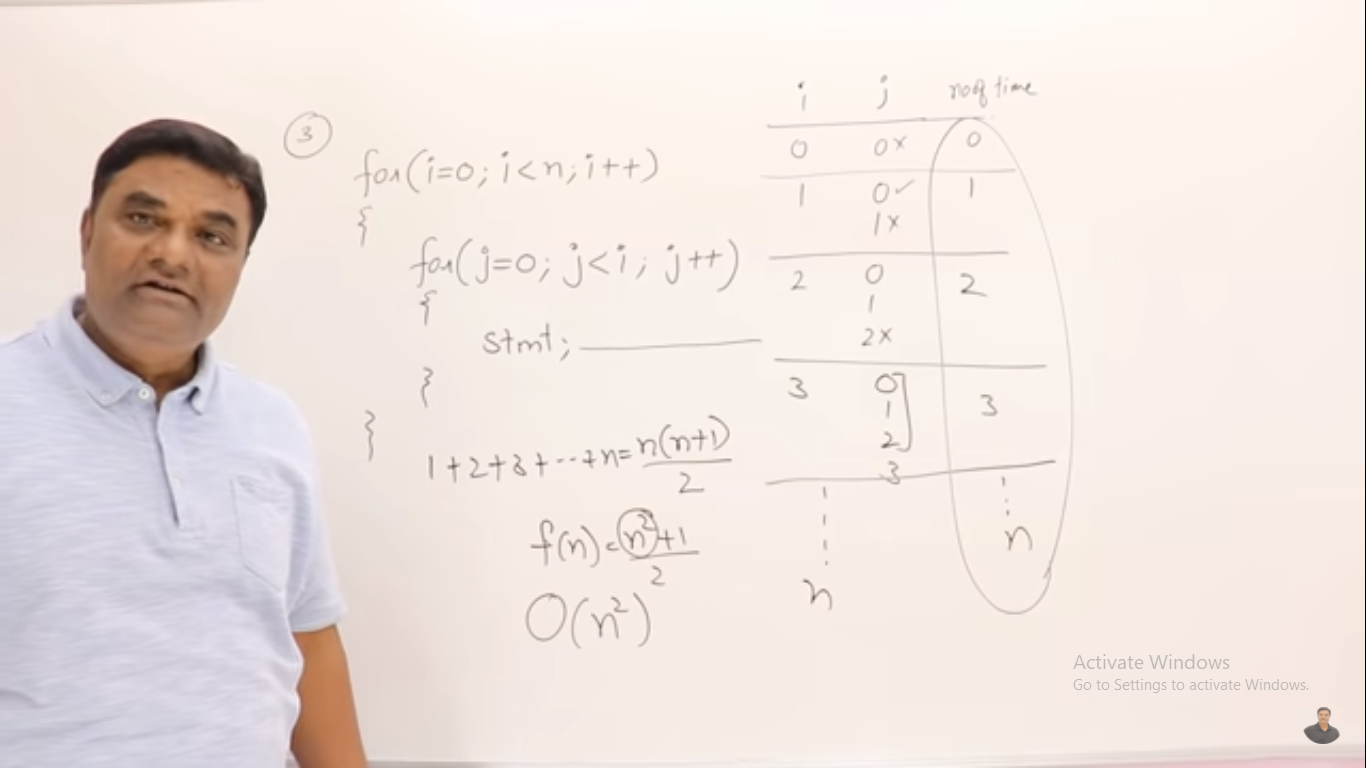 ③
for(i=0; i<n; i++)
{
for(j=0; j<i; j++)
{
stmt;
}
}
1+2+3+---+n=n(n+1)/2
f(n)=n²+1/2
O(n²)
i j no of time
0 0× 0
1 0✓ 1
1×
2 0 2
1
2×
3 0 3
1
2
3
n n
Activate Windows
Go to Settings to activate Windows.